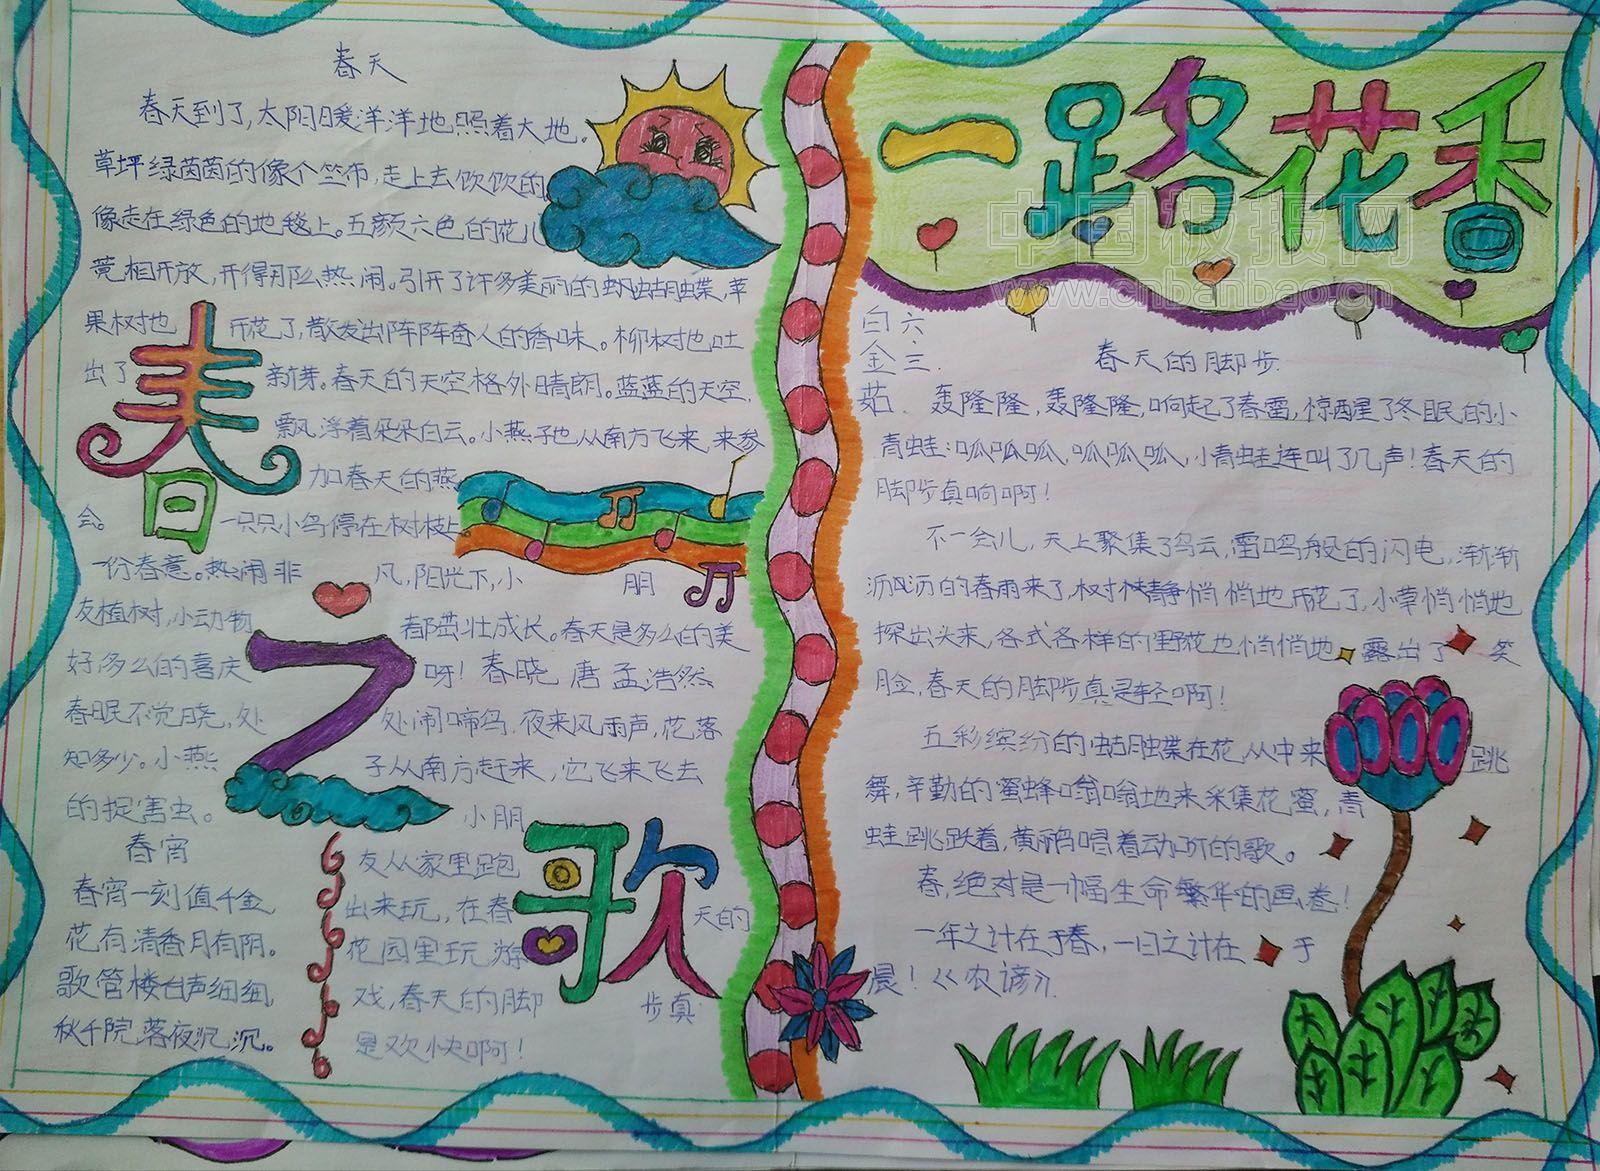 春天
春天到了,太阳日暖洋洋地照着大地。
草坪绿茵茵的像个竺布,走上去饮饮的
像走在绿色的地毯上。五颜六色的花儿
竟相开放,开得那么热闹。引开了许多美丽的蝴蝶,苹
果树也开花了,散发出阵阵奋人的香味。柳树也吐
出了新芽。春天的天空格外晴朗。蓝蓝的天空,
飘浮着朵朵白云。小燕子也从南方飞来,来参
加春天的燕
会。一只只小鸟停在树枝上
一份春意。热闹非凡,阳光下,小朋
友植树,小动物都茁壮成长。春天是多么的美
好多么的喜庆呀!春晓 唐 孟浩然
春眠不觉晓,处处闹啼鸟,夜来风雨声,花落
知多少。小燕子从南方赶来,它飞来飞去
的捉害虫。小朋
友从家里跑
出来玩,在春天的
花园里玩游
戏,春天的脚步真
是欢快啊!
春宵
春宵一刻值千金,
花有清香月有阴。
歌管楼台声细细,
秋千院落夜沉沉。
春之歌
一路花香
中国板报网
www.cnbanbao.cn
六、三.
白金茹
春天的脚步
轰隆隆,轰隆隆,响起了春雷,惊醒了冬眠的小
青蛙:呱呱呱,呱呱呱,小青蛙连叫了几声!春天的
脚步真响啊!
不一会儿,天上聚集了乌云,雷鸣般的闪电,渐渐
沥沥的春雨来了,树木静悄悄地开花了,小草悄悄地
探出头来,各式各样的野花也悄悄地露出了笑
脸,春天的脚步真是轻啊!
五彩缤纷的蝴蝶在花丛中来跳
舞,辛勤的蜜蜂嗡嗡地来采集花蜜,青
蛙跳跃着,黄鹂鸟唱着动听的歌。
春,绝对是一幅生命繁华的画卷!
一年之计在于春,一日之计在于
晨!《农谚》